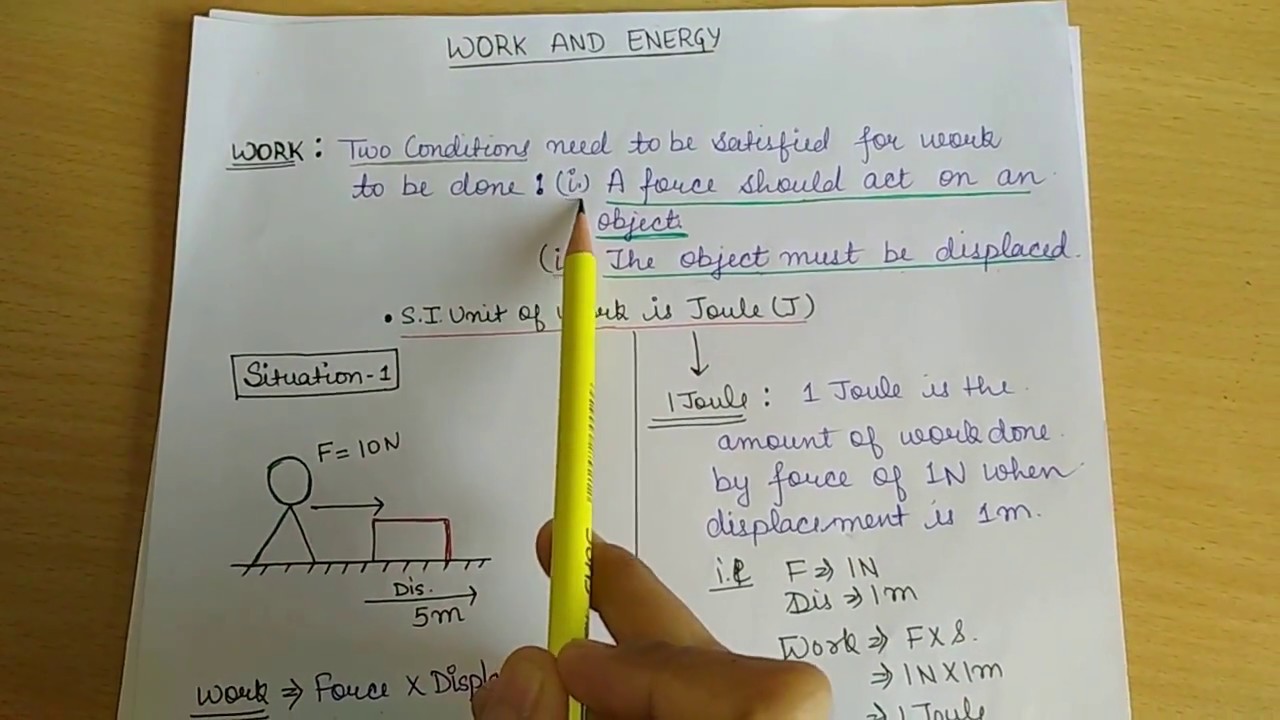 WORK AND ENERGY
WORK : Two Conditions need to be satisfied for work
to be done : (i.) A force should act on an
object.
The object must be displaced.
• S.I. Unit of is Joule (J)
Situation-1
F = 10N
Dis.
5m
Work ⇒ Force X
1 Joule : 1 Joule is the
amount of work done
by force of 1N when
displacement is 1m.
i.e F ⇒ 1N
Dis ⇒ 1m
Work ⇒ F X S.
⇒ 1N X 1m
⇒ 1 Joule